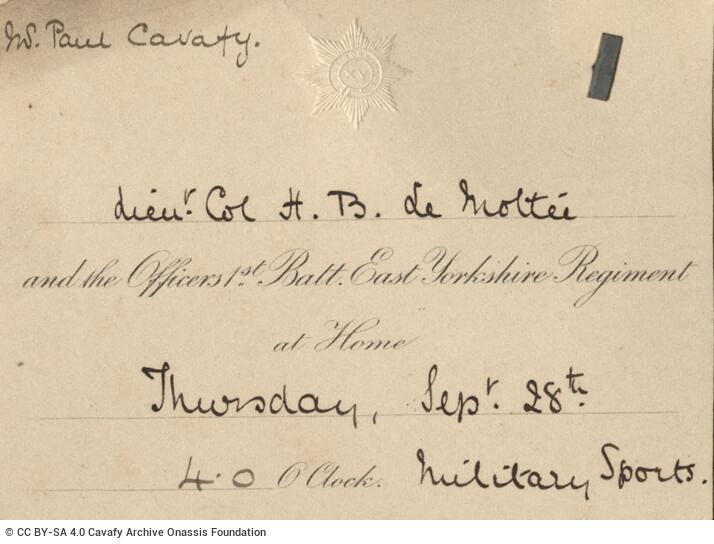 Mr. Paul Cavafy.
XV
Lieut. Col H. B. Le Mottée
and the Officers 1st. Batt. East Yorkshire Regiment
at Home
Thursday, Sept. 28th.
4.0 O'Clock. Military Sports.
© CC BY-SA 4.0 Cavafy Archive Onassis Foundation